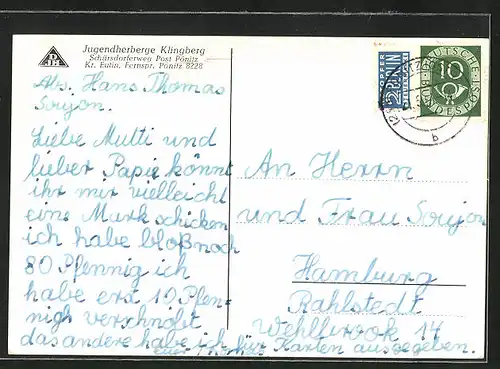 Jugendherberge Klingberg
Schürsdorferweg Post Pönitz
Kr. Eutin, Fernspr. Pönitz 8228
Abs. Hans Thomas
Soujon.
Liebe Mutti und
lieber Papie könnt
ihr mir vielleicht
eine Mark schicken
ich habe bloß noch
80 Pfennig ich
habe erst 10 Pfen=
nigh verschnöft
das andere habe ich für Karten ausgegeben.
An Herrn
und Frau Soujon
Hamburg
Rahlstedt
Wehlbrook 14
NOTOPFER
2 BERLIN
STEUERMARKE
DEUTSCHE BUNDESPOST
10
b